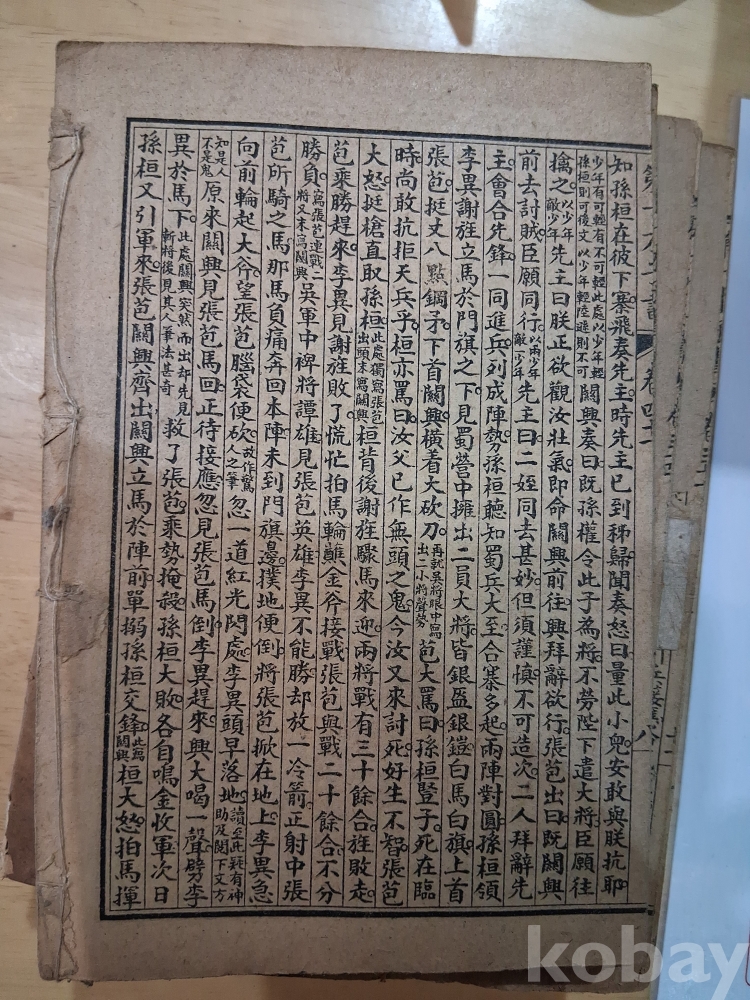 知孫桓在彼下寨飛奏先主時先主已到秭歸聞奏怒曰量此小兒安敢與朕抗耶
少年有可輕有不可輕此處以少年輕
孫桓則可後文以少年輕陸遜則不可
關興奏曰既孫權令此子為將不勞陛下遣大將臣願往
擒之
以少年
敵少年
先主曰朕正欲觀汝壯氣即命關興前往興拜辭欲行張苞出曰既關興
前去討賊臣願同行
以兩少年
敵一少年
先主曰二姪同去甚妙但須謹慎不可造次二人拜辭先
主會合先鋒一同進兵列成陣勢孫桓聽知蜀兵大至合寨多起兩陣對圓孫桓領
李異謝旌立馬於門旗之下見蜀營中擁出二員大將皆銀盔銀鎧白馬白旗上首
張苞挺丈八點鋼矛下首關興橫着大砍刀
再就吳將眼中寫
出二小將聲勢
苞大罵曰孫桓豎子死在臨
時尚敢抗拒天兵乎桓亦罵曰汝父已作無頭之鬼今汝又來討死好生不智張苞
大怒挺槍直取孫桓
此處獨寫張苞
出頭未寫關興
桓背後謝旌驟馬來迎兩將戰有三十餘合旌敗走
苞乘勝趕來李異見謝旌敗了慌忙拍馬輪蘸金斧接戰張苞與戰二十餘合不分
勝負
寫張苞連戰二
將又未寫關興
吳軍中裨將譚雄見張苞英雄李異不能勝却放一冷箭正射中張
苞所騎之馬那馬負痛奔回本陣未到門旗邊撲地便倒將張苞掀在地上李異急
向前輪起大斧望張苞腦袋便砍
故作驚
人之筆
忽一道紅光閃處李異頭早落地
讀至此疑有神
助及閱下文方
知是人
不是鬼
原來關興見張苞馬回正待接應忽見張苞馬倒李異趕來興大喝一聲劈李
異於馬下
此處關興突然而出却先見
斬將後見其人筆法甚奇
救了張苞乘勢掩殺孫桓大敗各自鳴金收軍次日
孫桓又引軍來張苞關興齊出關興立馬於陣前單搦孫桓交鋒
此寫
關興
桓大怒拍馬揮
卷四十二
八
kobay